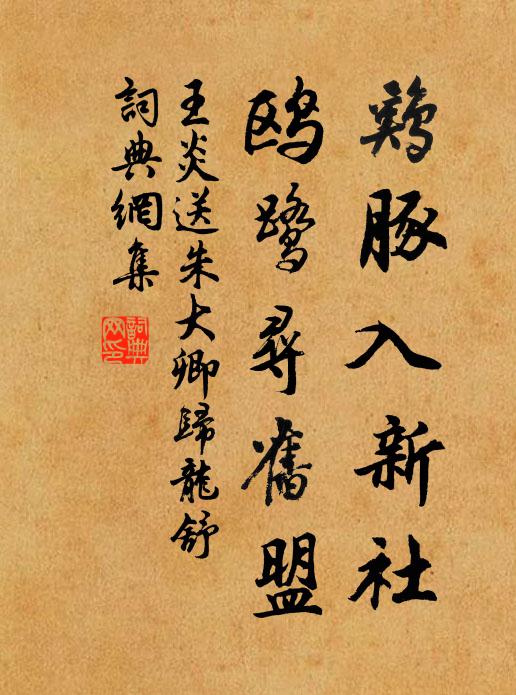 鷄豚入新社
鷗鷺尋舊盟
王炎送朱大卿歸龍舒
詞典網集
詞典網印